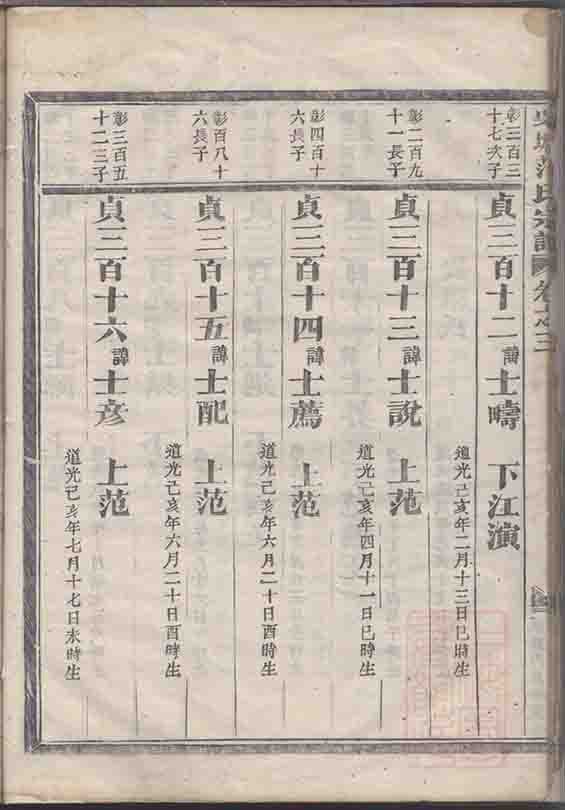 范氏宗譜 卷之三
彰三百三
十七次子
貞三百十二 諱 士疇 下江演
道光己亥年二月十三日巳時生
彰二百九
十一長子
貞三百十三 諱 士說 上范
道光己亥年四月十一日巳時生
彰四百十
六長子
貞三百十四 諱 士薦 上范
道光己亥年六月二十日酉時生
彰百八十
六長子
貞三百十五 諱 士配 上范
道光己亥年六月二十日酉時生
彰三百五
十二三子
貞三百十六 諱 士彥 上范
道光己亥年七月十七日未時生